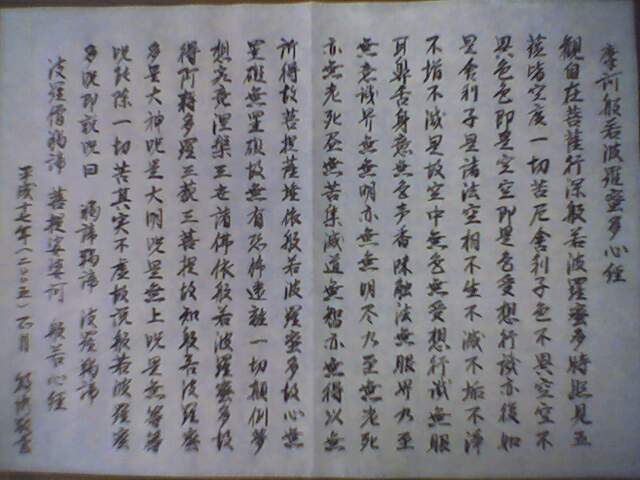 摩訶般若波羅蜜多心經
觀自在菩薩行深般若波羅蜜多時照見五
蘊皆空度一切苦厄舍利子色不異空空不
異色色即是空空即是色受想行識亦復如
是舍利子是諸法空相不生不滅不垢不淨
不增不減是故空中無色無受想行識無眼
耳鼻舌身意無色声香味触法無眼界乃至
無意識界無無明亦無無明尽乃至無老死
亦無老死尽無苦集滅道無智亦無得以無
所得故菩提薩埵依般若波羅蜜多故心無
罣礙無罣礙故無有恐怖遠離一切顛倒夢
想究竟涅槃三世諸佛依般若波羅蜜多故
得阿耨多羅三藐三菩提故知般若波羅蜜
多是大神呪是大明呪是無上呪是無等等
呪能除一切苦真実不虛故說般若波羅蜜
多呪即說呪曰 羯諦羯諦 波羅羯諦
波羅僧羯諦 菩提娑婆訶 般若心経
平成十七年(二〇〇五)六月